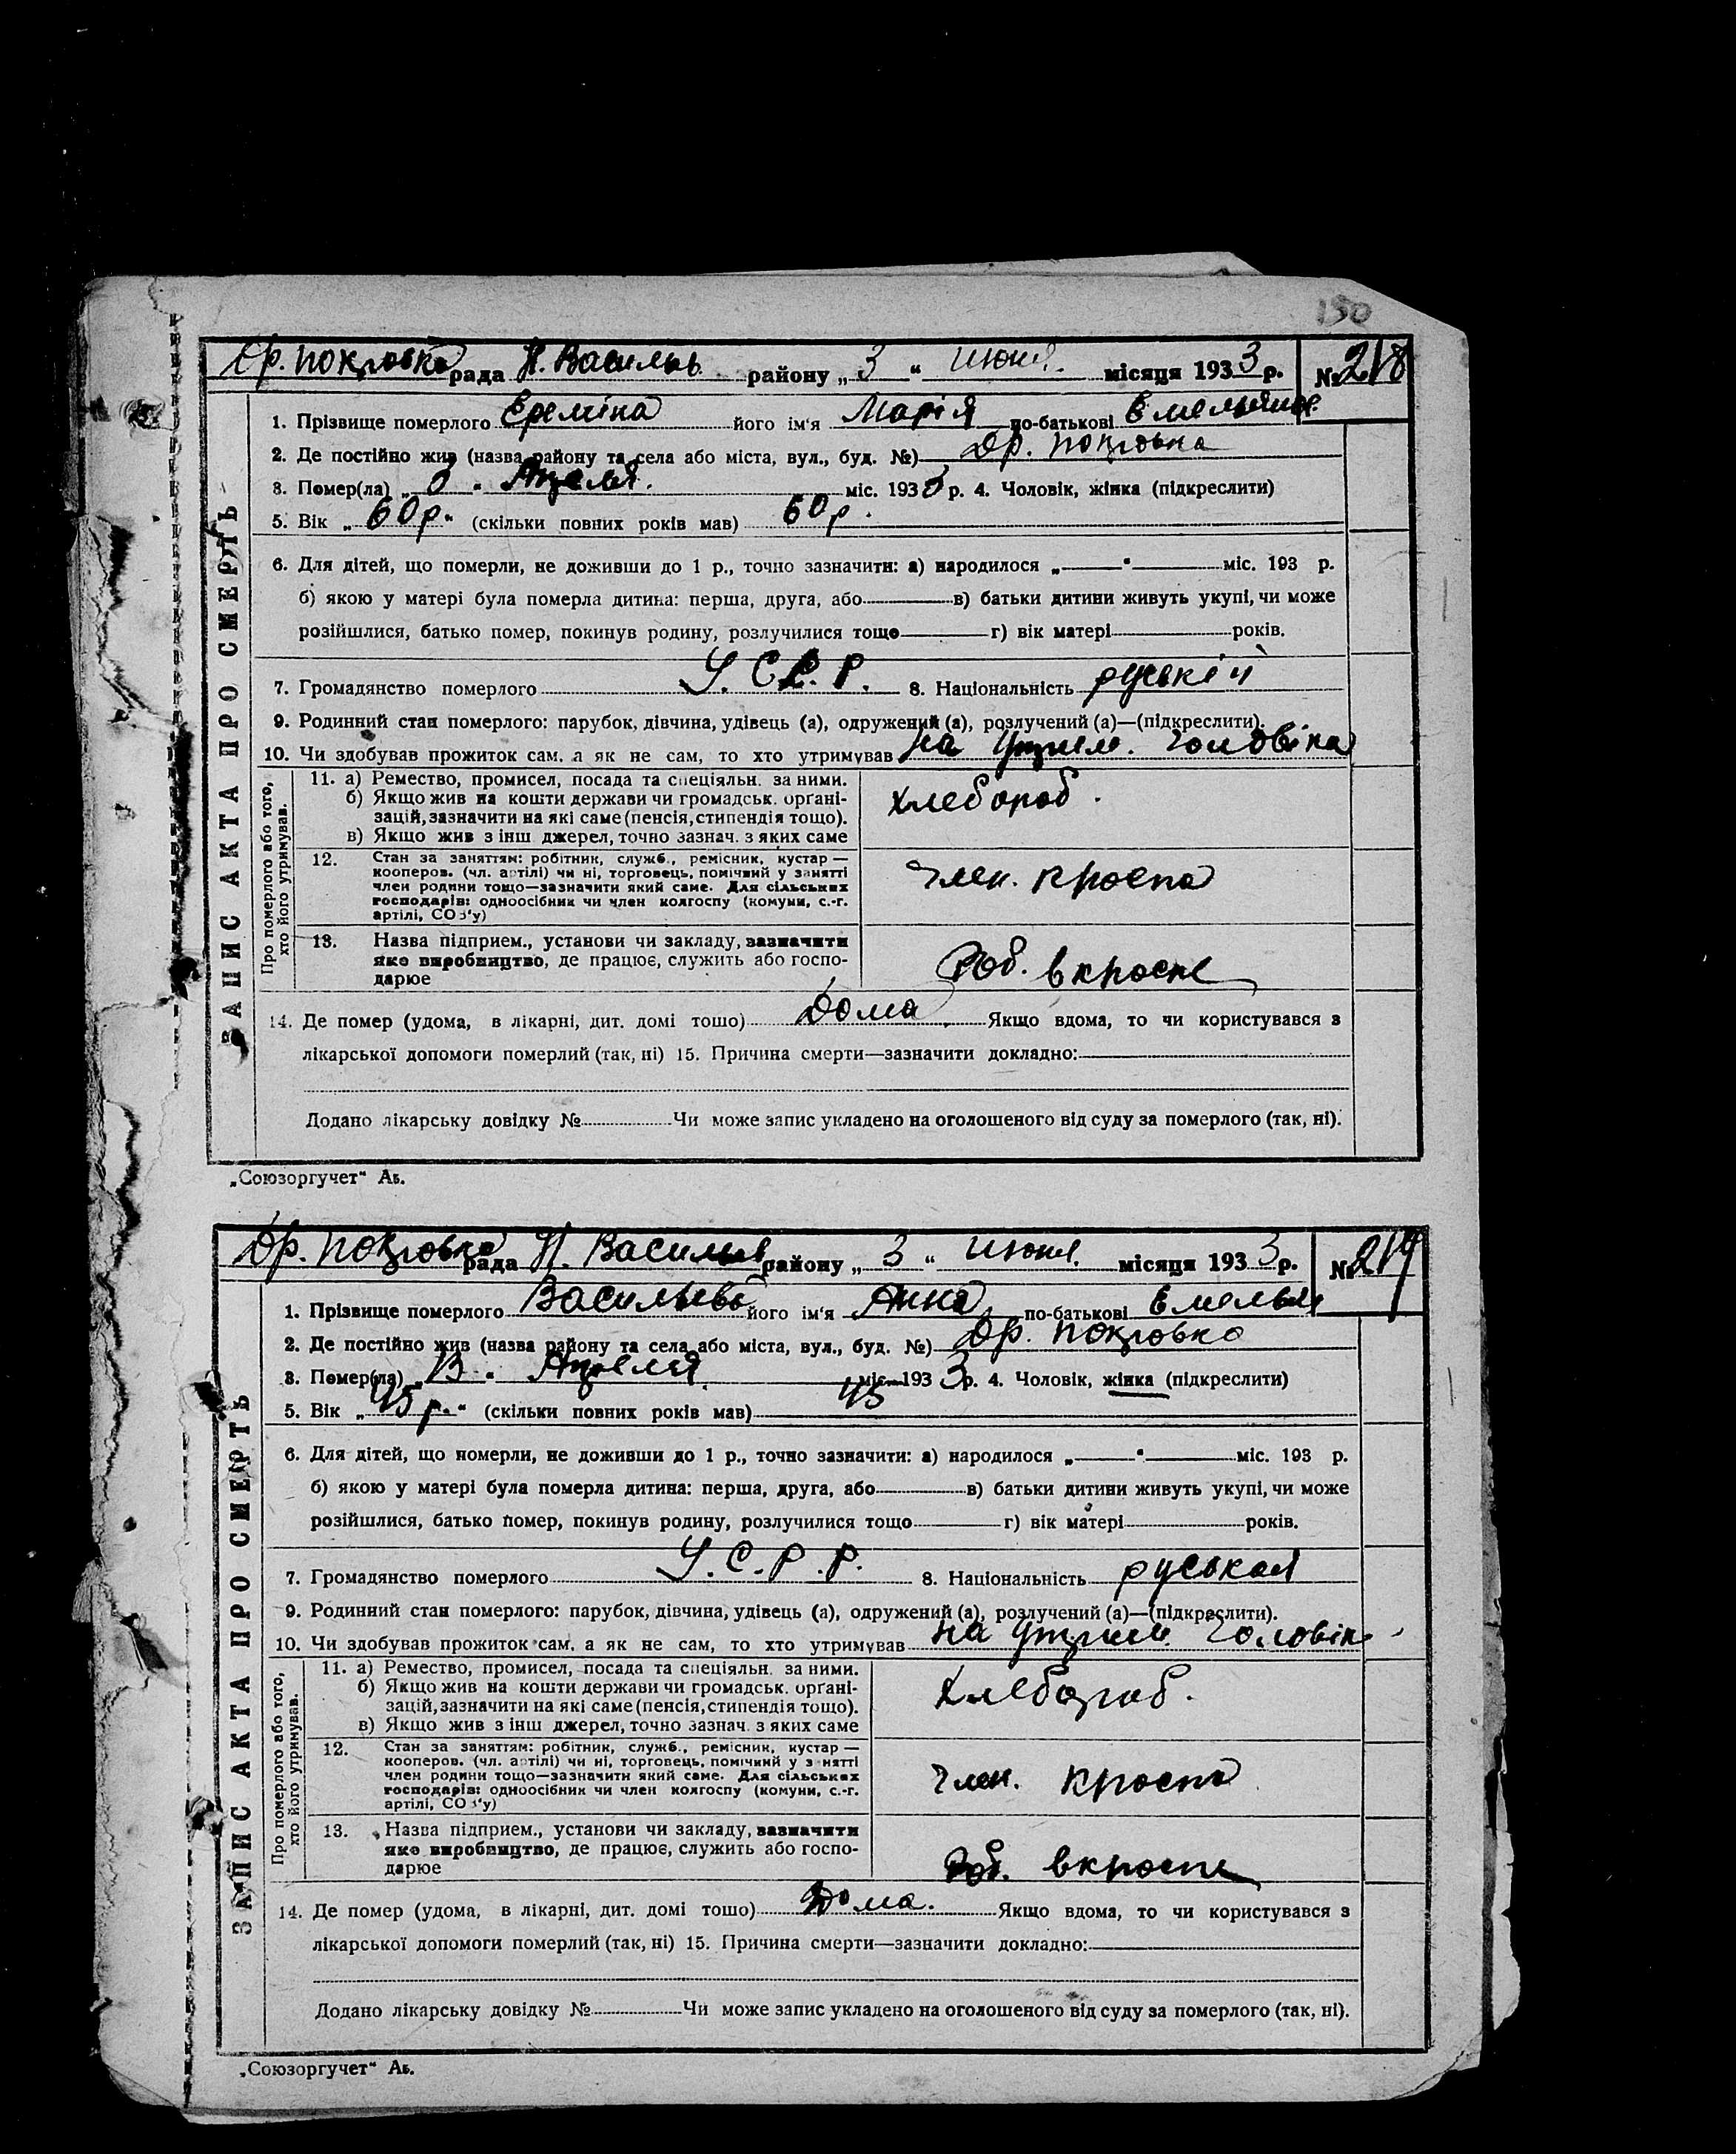 150
Др. Покровка рада Н. Васильев району „3“ июня місяця 1933 р. № 218
1. Прізвище померлого Еремiна його ім'я Марія по-батькові Емельянов.
2. Де постійно жив (назва району та села або міста, вул., буд. №) Др. Покровка
3. Помер(ла) „ “ Апреля. міс. 1933 р. 4. Чоловік, жінка (підкреслити)
5. Вік „60 р.“ (скільки повних років мав) 60 р.
6. Для дітей, що померли, не доживши до 1 р., точно зазначити: а) народилося „ “ міс. 193 р.
б) якою у матері була померла дитина: перша, друга, або в) батьки дитини живуть укупі, чи може
розійшлися, батько помер, покинув родину, розлучилися тощо г) вік матері років.
7. Громадянство померлого У.С.Р.Р. 8. Національність руській
9. Родинний стан померлого: парубок, дівчина, удівець (а), одружений (а), розлучений (а)—(підкреслити).
10. Чи здобував прожиток сам, а як не сам, то хто утримував на утрим. Чоловіка
ЗАПИС АКТА ПРО СМЕРТЬ
Про померлого або того, хто його утримував.
11. а) Ремество, промисел, посада та спеціяльн. за ними.
б) Якщо жив на кошти держави чи громадськ. орґані-
зацій, зазначити на які саме (пенсія, стипендія тощо).
в) Якщо жив з інш джерел, точно зазнач. з яких саме
Хлебороб.
12. Стан за заняттям: робітник, служб., ремісник, кустар —
кооперов. (чл. артілі) чи ні, торговець, помічний у занятті
член родини тощо—зазначити який саме. Для сільських
господарів: одноосібник чи член колгоспу (комуни, с.-г.
артілі, СОЗ'у)
Член.
13. Назва підприєм., установи чи закладу, зазначити
яке виробництво, де працює, служить або госпо-
дарює
Роб. в
14. Де помер (удома, в лікарні, дит. домі тощо) Дома Якщо вдома, то чи користувався з
лікарської допомоги померлий (так, ні) 15. Причина смерти—зазначити докладно:
Додано лікарську довідку № Чи може запис укладено на оголошеного від суду за померлого (так, ні).
„Союзоргучет“ Аь.
Др. Покровка рада Н. Васильев району „3“ июня. місяця 1933 р. № 219
1. Прізвище померлого Васильева його ім'я Анна по-батькові Емельян
2. Де постійно жив (назва району та села або міста, вул., буд. №) Др. Покровка
3. Помер(ла) „13“ Апреля міс. 1933 р. 4. Чоловік, жінка (підкреслити)
5. Вік „45 р.“ (скільки повних років мав) 45
6. Для дітей, що померли, не доживши до 1 р., точно зазначити: а) народилося „ “ міс. 193 р.
б) якою у матері була померла дитина: перша, друга, або в) батьки дитини живуть укупі, чи може
розійшлися, батько помер, покинув родину, розлучилися тощо г) вік матері років.
7. Громадянство померлого У.С.Р.Р. 8. Національність руськая
9. Родинний стан померлого: парубок, дівчина, удівець (а), одружений (а), розлучений (а)—(підкреслити).
10. Чи здобував прожиток сам, а як не сам, то хто утримував на утрим. Чоловік
ЗАПИС АКТА ПРО СМЕРТЬ
Про померлого або того, хто його утримував.
11. а) Ремество, промисел, посада та спеціяльн. за ними.
б) Якщо жив на кошти держави чи громадськ. орґані-
зацій, зазначити на які саме (пенсія, стипендія тощо).
в) Якщо жив з інш джерел, точно зазнач. з яких саме
Хлебороб.
12. Стан за заняттям: робітник, служб., ремісник, кустар —
кооперов. (чл. артілі) чи ні, торговець, помічний у занятті
член родини тощо—зазначити який саме. Для сільських
господарів: одноосібник чи член колгоспу (комуни, с.-г.
артілі, СОЗ'у)
Член.
13. Назва підприєм., установи чи закладу, зазначити
яке виробництво, де працює, служить або госпо-
дарює
Роб. в
14. Де помер (удома, в лікарні, дит. домі тощо) Дома. Якщо вдома, то чи користувався з
лікарської допомоги померлий (так, ні) 15. Причина смерти—зазначити докладно:
Додано лікарську довідку № Чи може запис укладено на оголошеного від суду за померлого (так, ні).
„Союзоргучет“ Аь.